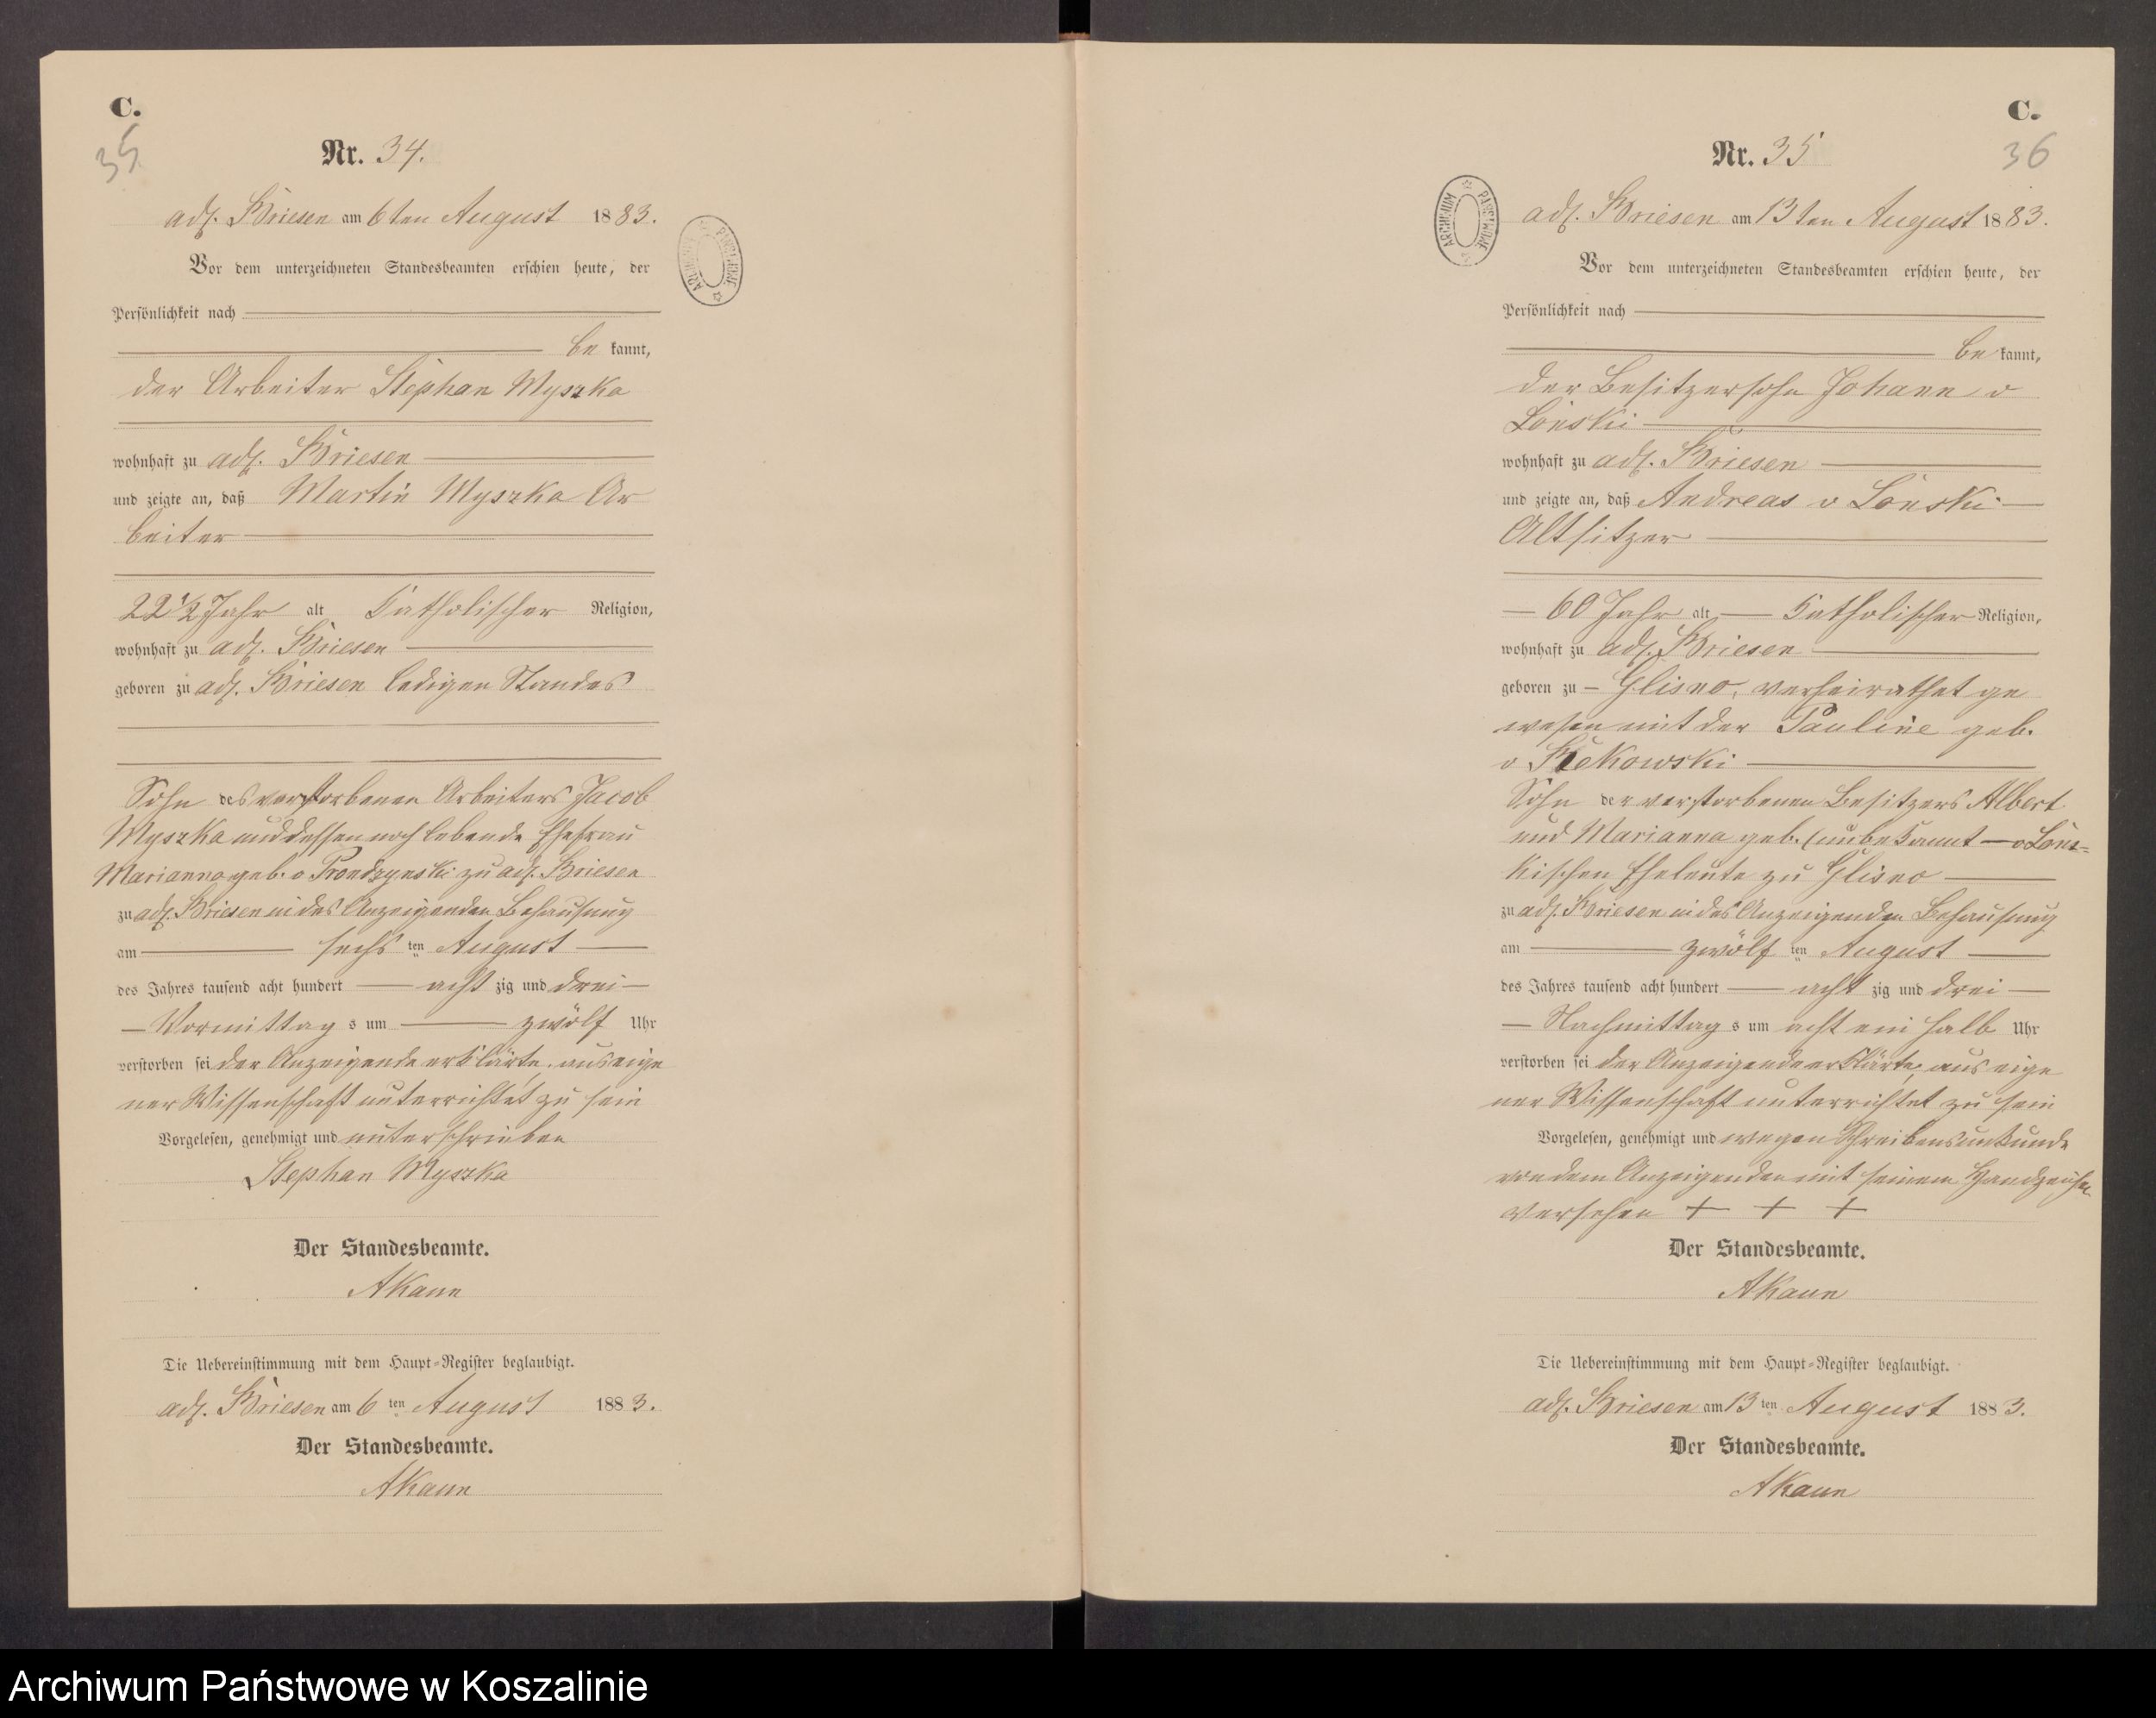 C.
35
Nr. 34.
adl. Briesen am 6ten August 1883.
Vor dem unterzeichneten Standesbeamten erschien heute, der
Persönlichkeit nach
be kannt,
der Arbeiter Stephan Myszka
wohnhaft zu adl. Briesen
und zeigte an, daß Martin Myszka Ar
beiter
22 1/2 Jahr alt Katholischer Religion,
wohnhaft zu adl. Briesen
geboren zu adl. Briesen ledigen Standes
Sohn des verstorbenen Arbeiters Jacob
Myszka und dessen noch lebende Ehefrau
Marianna geb. v Prondzynski zu adl. Briesen
zu adl. Briesen in des Anzeigenden Behausung
am sechs ten August
des Jahres tausend acht hundert acht zig und drei
Vormittag s um zwölf Uhr
verstorben sei der Anzeigende erklärte, aus eige
ner Wissenschaft unterrichtet zu sein
Vorgelesen, genehmigt und unterschrieben
Stephan Myszka
Der Standesbeamte.
AKaun
Die Uebereinstimmung mit dem Haupt-Register beglaubigt.
adl. Briesen am 6 ten August 1883.
Der Standesbeamte.
AKaun
C.
36
Nr. 35
ARCHIWUM PAŃSTWOWE
adl. Briesen am 13ten August 1883.
Vor dem unterzeichneten Standesbeamten erschien heute, der
Persönlichkeit nach
be kannt,
der Besitzersohn Johann v
Lonski
wohnhaft zu adl. Briesen
und zeigte an, daß Andreas v Lonski
Altsitzer
60 Jahr alt Katholischer Religion,
wohnhaft zu adl. Briesen
geboren zu Glisno, verheirathet ge
wesen mit der Pauline geb.
v
Sohn der verstorbenen Besitzers Albert
und Marianna geb. (unbekannt v Lons-
kischen Eheleute zu Glisno
zu adl. Briesen in des Anzeigenden Behausung
am zwölf ten August
des Jahres tausend acht hundert acht zig und drei
Nachmittag s um acht ein halb Uhr
verstorben sei der Anzeigende erklärte, aus eige
ner Wissenschaft unterrichtet zu sein
Vorgelesen, genehmigt und wegen Schreibensunkunde
von dem Anzeigenden mit seinem Handzeichen
versehen + + +
Der Standesbeamte.
AKaun
Die Uebereinstimmung mit dem Haupt-Register beglaubigt.
adl. Briesen am 13 ten August 1883.
Der Standesbeamte.
AKaun
Archiwum Państwowe w Koszalinie